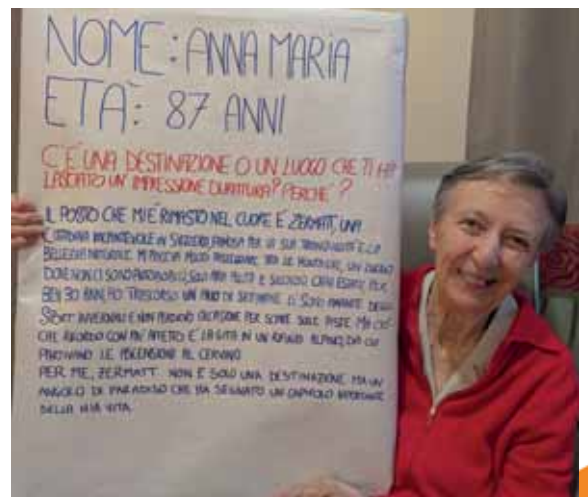 NOME: ANNA MARIA
ETÀ: 87 ANNI
C'È UNA DESTINAZIONE O UN LUOGO CHE TI HA
LASCIATO UN IMPRESSIONE DURATURA? PERCHÉ?
IL POSTO CHE MI È RIMASTO NEL CUORE È ZERMATT, UNA
CITTADINA INCANTEVOLE IN SVIZZERA FAMOSA PER LA SUA TRANQUILLITÀ E LA
BELLEZZA NATURALE. MI PIACEVA MOLTO PASSEGGIARE TRA LE MONTAGNE, UN LUOGO
DOVE NON CI SONO AUTOMOBILI, SOLO ARIA PULITA E SILENZIO. OGNI ESTATE PER
BEN 30 ANNI, HO TRASCORSO UN PAIO DI SETTIMANE. SONO AMANTE DEGLI
SPORT INVERNALI E NON PERDEVO OCCASIONE PER SCIARE SULLE PISTE. MA CIÒ
CHE RICORDO CON PIÙ AFFETTO È LA GITA IN UN RIFUGIO ALPINO, DA CUI
PARTIVANO LE ASCENSIONI AL CERVINO.
PER ME, ZERMATT NON È SOLO UNA DESTINAZIONE MA UN
ANGOLO DI PARADISO CHE HA SEGNATO UN CAPITOLO IMPORTANTE
DELLA MIA VITA.